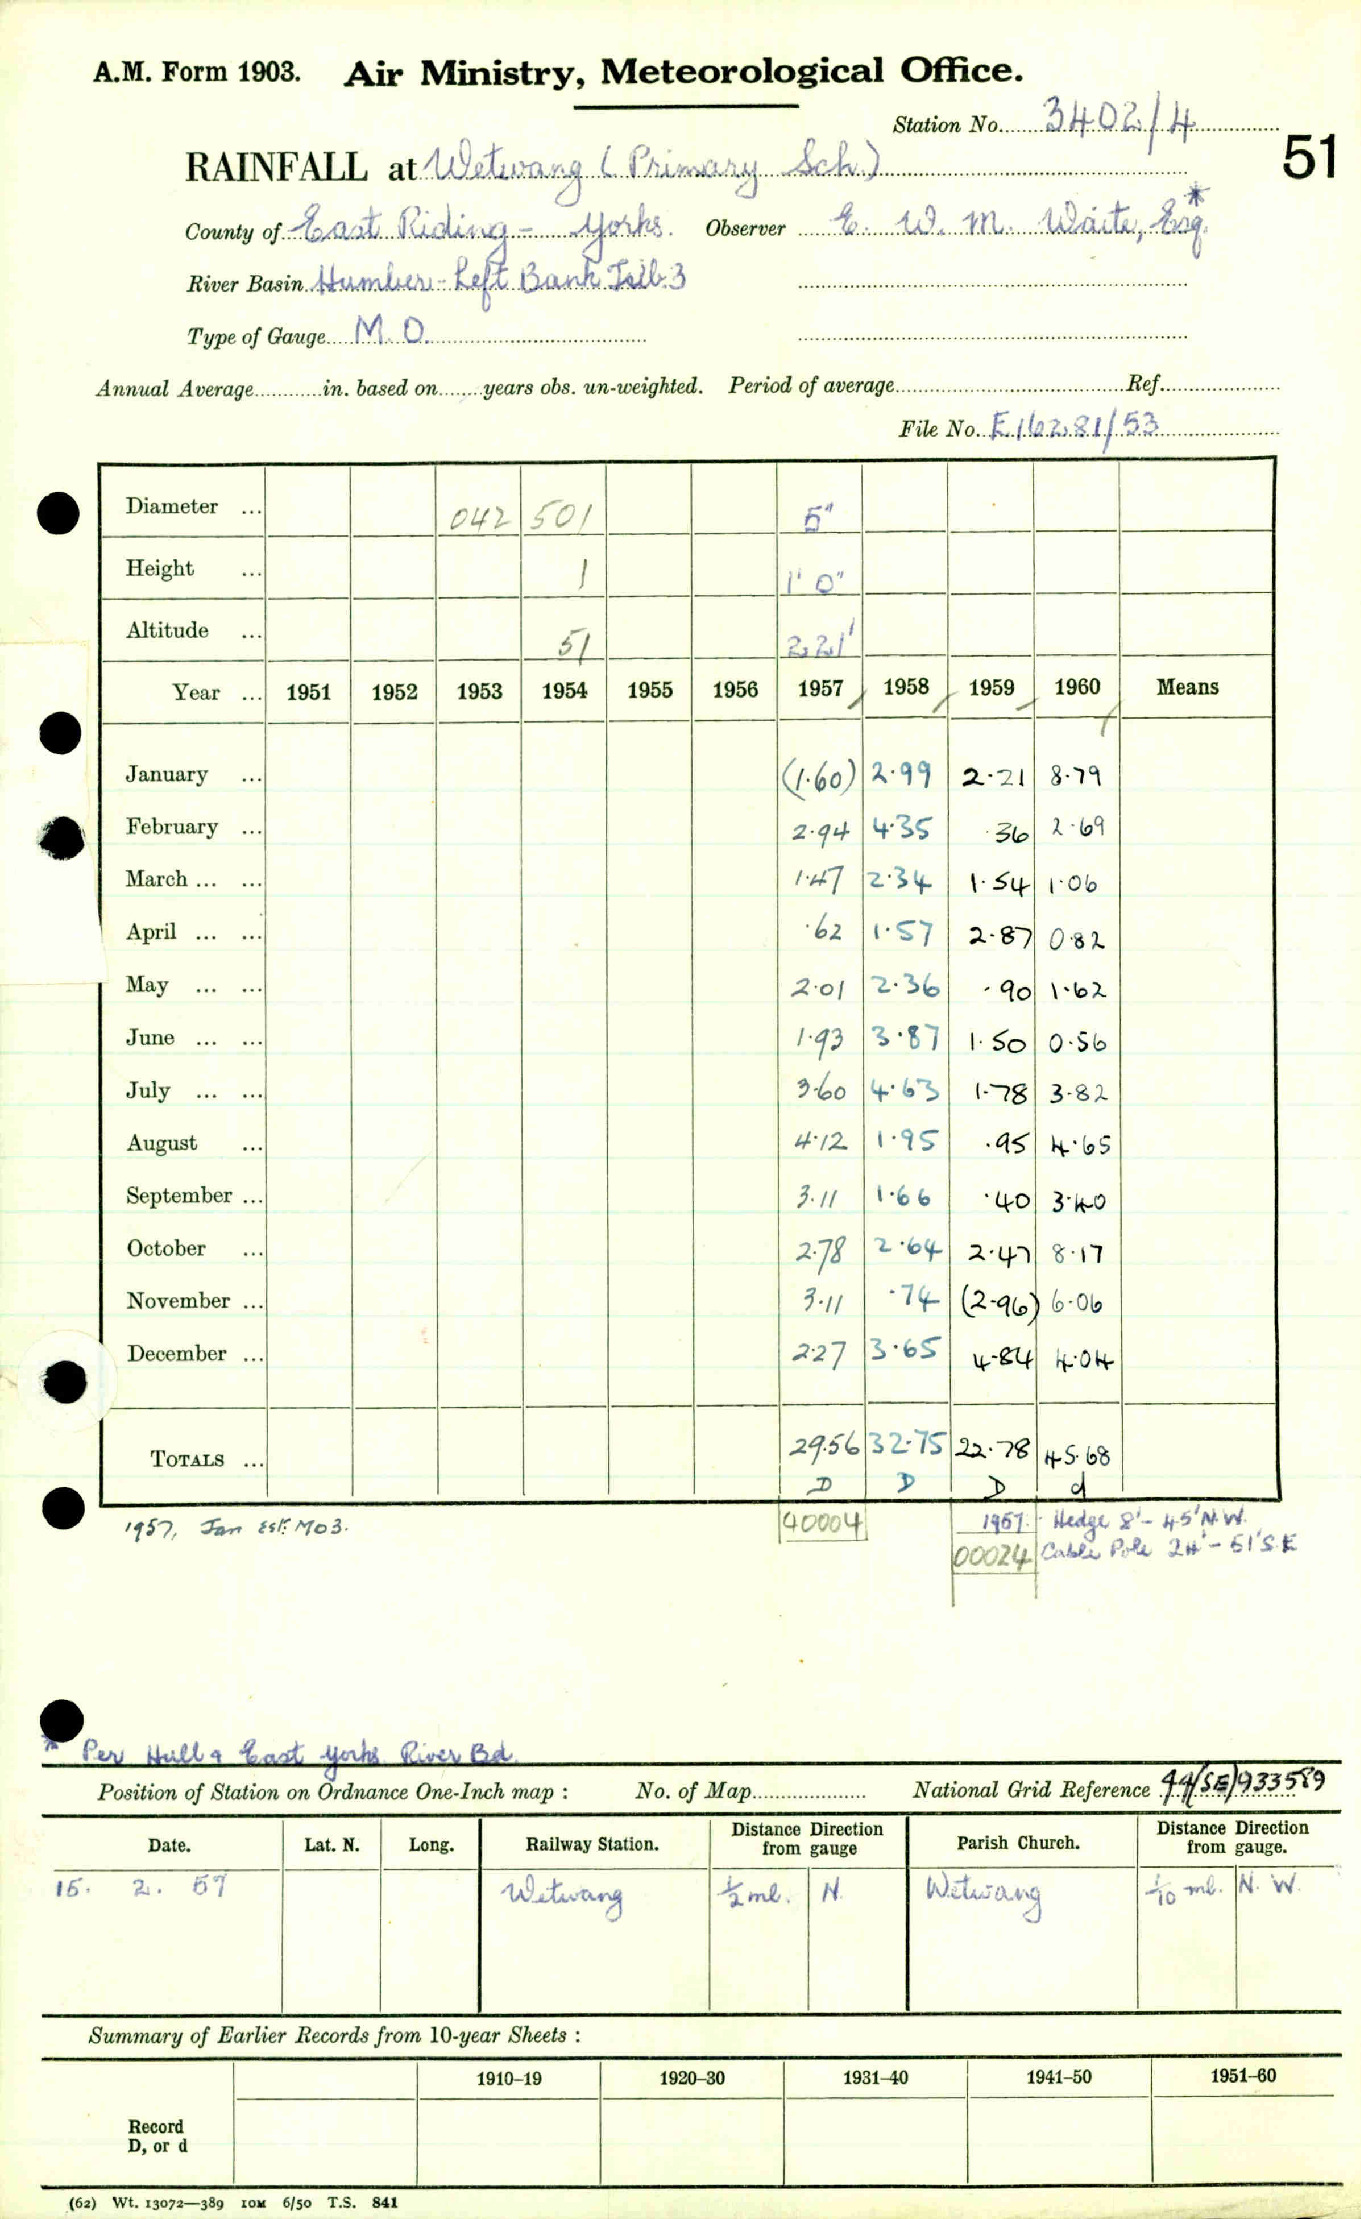 A.M. Form 1903. Air Ministry, Meteorological Office.
Station No. 3402/4
51
RAINFALL at Wetwang (Primary Sch.)
County of East Riding - Yorks. Observer E. W. M. Waite, Esq.*
River Basin Humber - Left Bank Trib. 3
Type of Gauge M.O.
Annual Average in. based on years obs. un-weighted. Period of average Ref.
File No. E16281/53
Diameter ... 042 501 5"
Height ... 1 1' 0"
Altitude ... 51 221'
Year ... 1951 1952 1953 1954 1955 1956 1957 1958 1959 1960 Means
January ... (1.60) 2.99 2.21 8.79
February ... 2.94 4.35 .36 2.69
March ... ... 1.47 2.34 1.54 1.06
April ... ... .62 1.57 2.87 0.82
May ... ... 2.01 2.36 .90 1.62
June ... ... 1.93 3.87 1.50 0.56
July ... ... 3.60 4.63 1.78 3.82
August ... 4.12 1.95 .95 4.65
September ... 3.11 1.66 .40 3.40
October ... 2.78 2.64 2.47 8.17
November ... 3.11 .74 (2.96) 6.06
December ... 2.27 3.65 4.84 4.04
TOTALS ... 29.56 32.75 22.78 45.68
D D D d
1957, Jan Est. MO3. 40004 1957. - Hedge 8' - 45' N.W.
00024 Cable Pole 24' - 51' S.E
* Per Hull & East Yorks. River Bd.
Position of Station on Ordnance One-Inch map : No. of Map National Grid Reference 44/(SE)933589
Date. Lat. N. Long. Railway Station. Distance Direction from gauge Parish Church. Distance Direction from gauge.
15. 2. 57 Wetwang ½ ml. N. Wetwang 1/10 ml. N. W.
Summary of Earlier Records from 10-year Sheets :
1910–19 1920–30 1931–40 1941–50 1951–60
Record
D, or d
(62) Wt. 13072—389 10M 6/50 T.S. 841